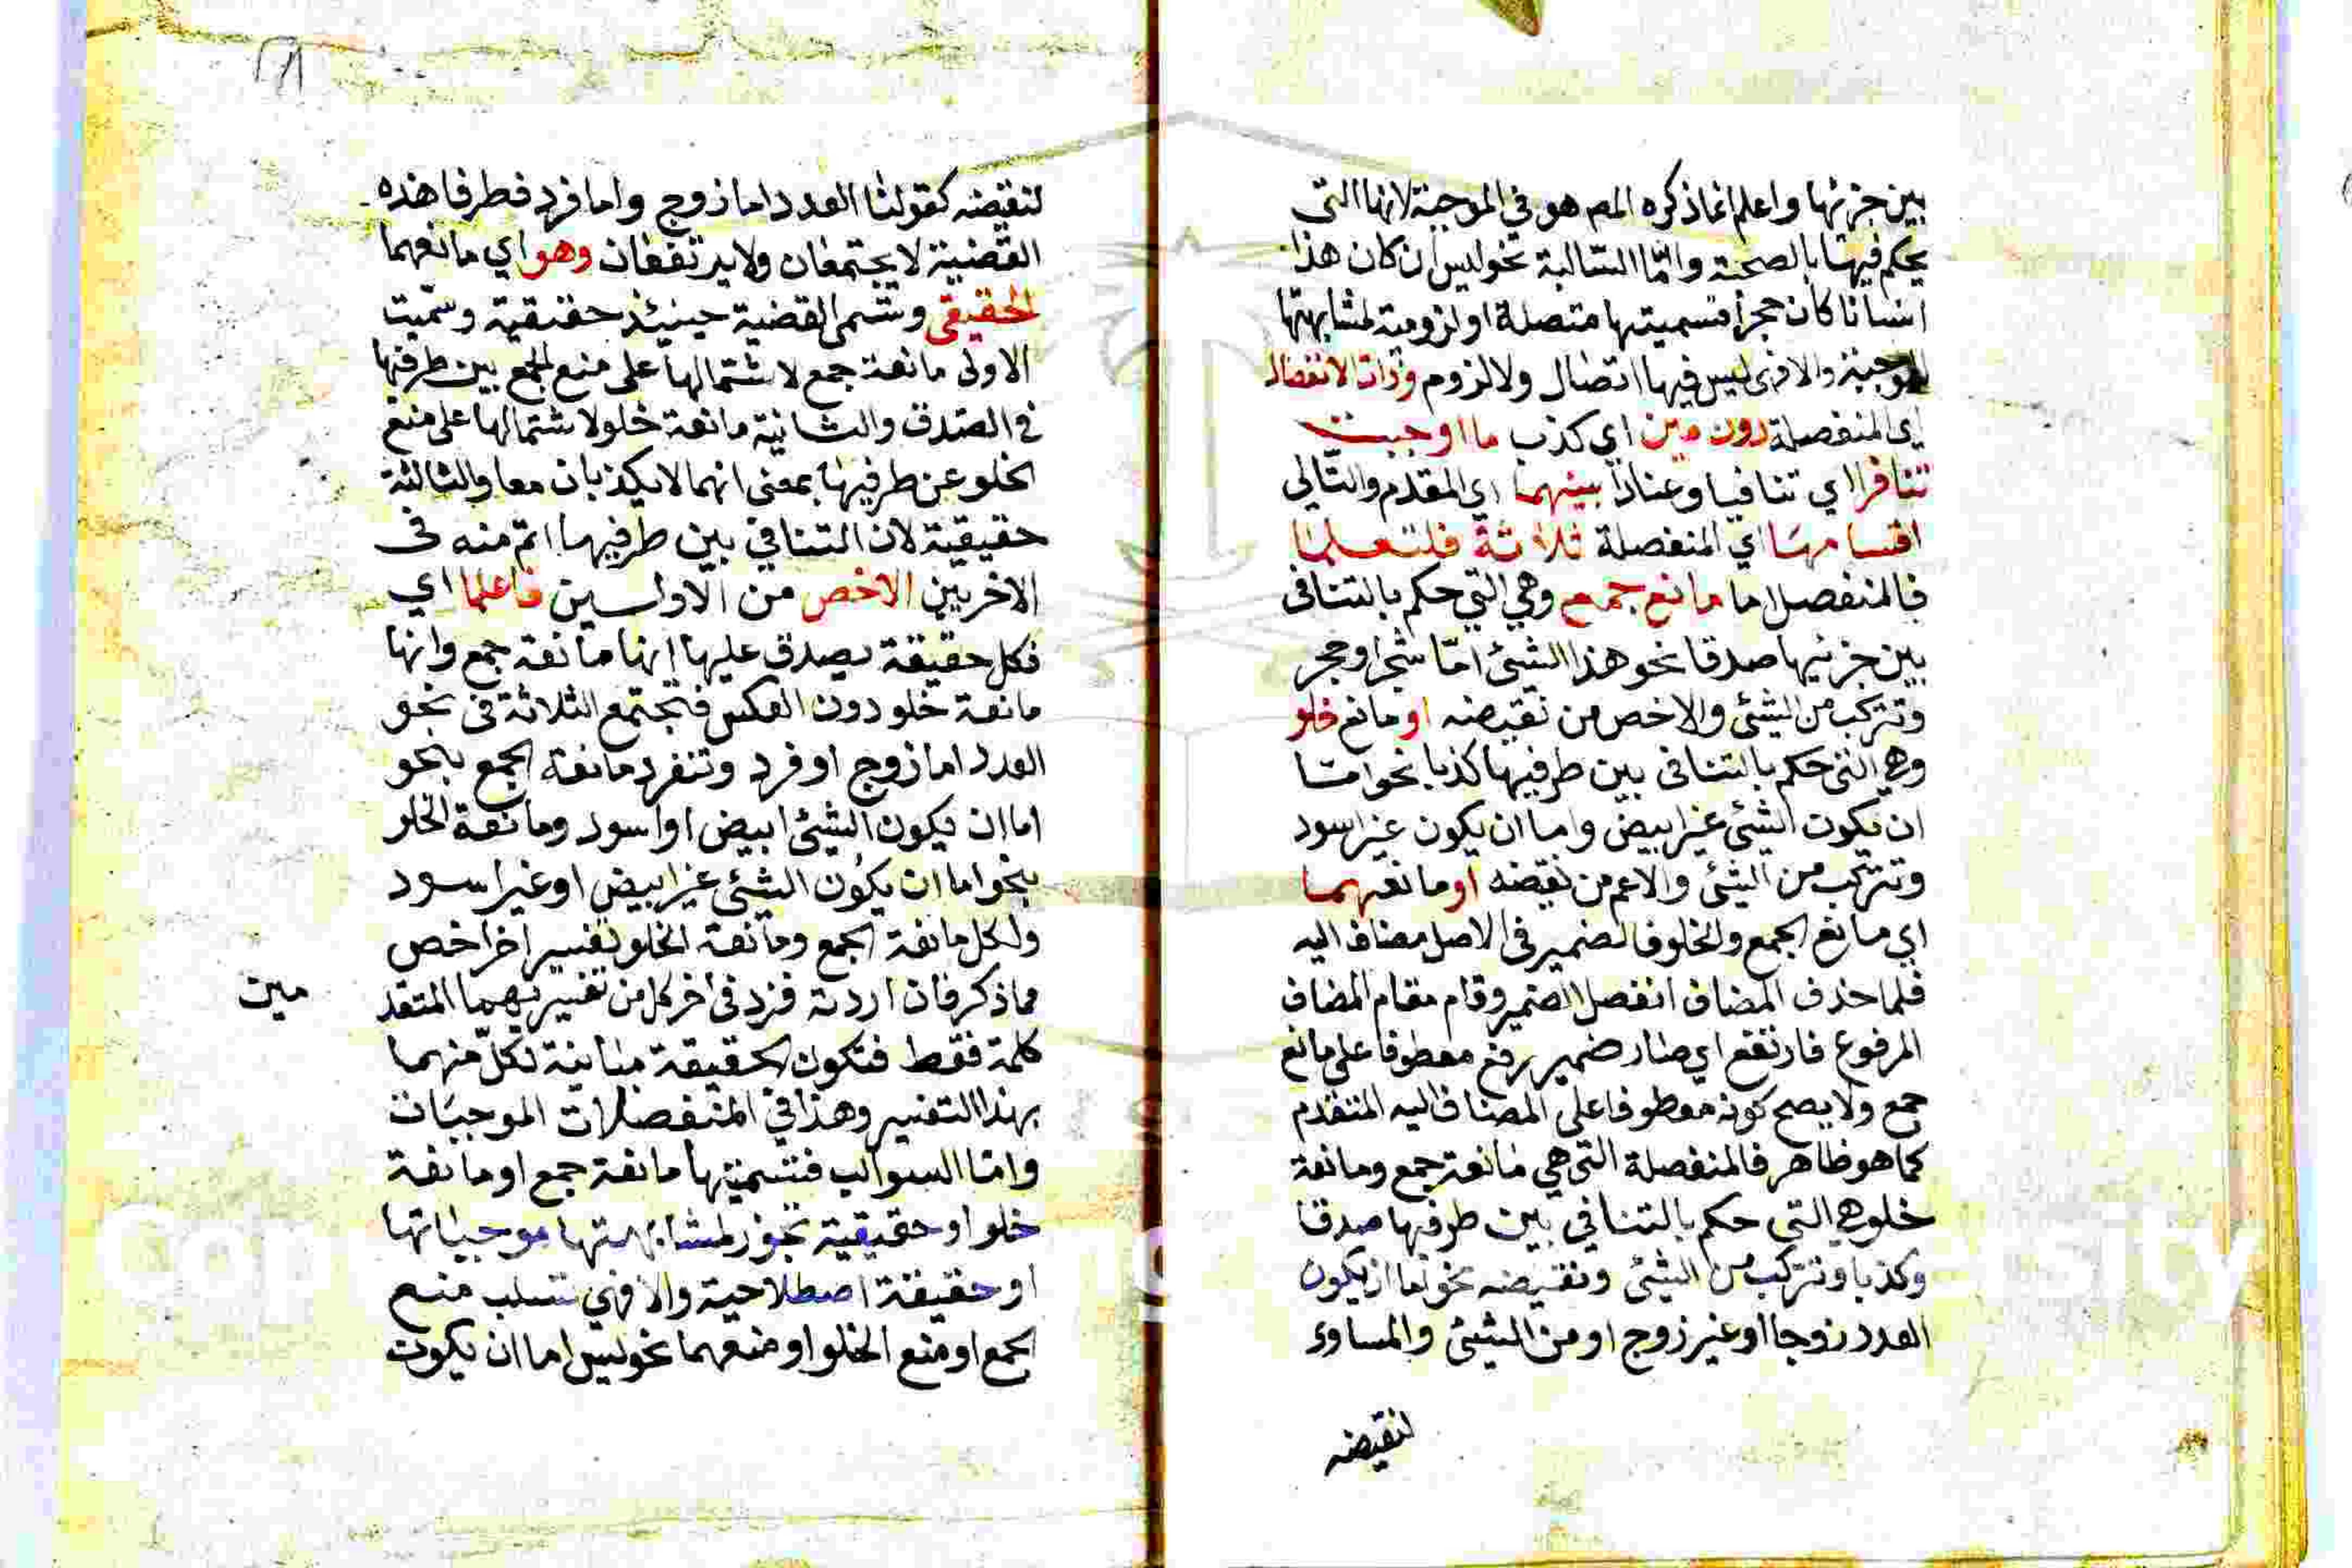 بين جزئها واعلم انما ذكره المص هو في الموجبة لانها التي
يحكم فيها بالصحة وامّا السّالبة نحو ليس ان كان هذا
انسانا كان حجرا فتسميتها متصلة او لزومية لمشابهتها
للموجبة والا فهى ليس فيها اتصال ولا لزوم وذات الانفصال
اي المنفصلة دون مين اي كذب ما اوجبت
تنافرا اي تنافيا وعنادا بينهما اي المقدم والتّالي
اقسامها اي المنفصلة ثلاثة فلتعلما
فالمنفصل اما مانع جمع وهي التي حكم بالتنافى
بين جزئيها صدقا نحو هذا الشئ امّا شجر او حجر
وتتركب من الشئ والاخص من نقيضه او مانع خلو
وهي التى حكم بالتنافى بين طرفيها كذبا نحو امّا
ان يكون الشئ غير ابيض واما ان يكون غير اسود
وتتركب من الشئ والاعم من نقيضه او مانعهما
اي مانع الجمع والخلو فالضمير فى الاصل مضاف اليه
فلما حذف المضاف انفصل الضمير وقام مقام المضاف
المرفوع فارتفع اي صار ضمير رفع معطوفا على مانع
جمع ولا يصح كونه معطوفا على المضاف اليه المتقدم
كما هو ظاهر فالمنفصلة التى هي مانعة جمع ومانعة
خلو هي التي حكم بالتنافي بين طرفيها صدقا
وكذبا وتتركب من الشئ ونقيضه نحو اما ان يكون
العدد زوجا او غير زوج او من الشئ والمساوى
لنقيضه
لنقيضه كقولنا العدد اما زوج واما فرد فطرفا هذه
القضية لا يجتمعان ولا يرتفعان وهو اي مانعهما
الحقيقى وتسمى القضية حينئذ حقيقية وسمّيت
الاولى مانعة جمع لاشتمالها على منع الجمع بين طرفيها
في الصدق والثانية مانعة خلو لاشتمالها على منع
الخلو عن طرفيها بمعنى انهما لا يكذبان معا والثالثة
حقيقية لان التنافي بين طرفيها اتم منه فى
الاخريين الاخص من الاولـين فاعلما اي
فكل حقيقة يصدق عليها انها مانعة جمع وانها
مانعة خلو دون العكس فتجتمع الثلاثة فى نحو
العدد اما زوج او فرد وتنفرد مانعة الجمع بنحو
اما ان يكون الشئ ابيض او اسود ومانعة الخلو
بنحو اما ان يكون الشئ غير ابيض او غير اسود
ولكل مانعة الجمع ومانعة الخلو تفسير اخر اخص
مما ذكر فان اردته فزد فى اخر كل من تفسيريهما المتقد
مين
كلمة فقط فتكون الحقيقة مباينة لكلّ منهما
بهذا التفسير وهذا في المنفصلات الموجبات
وامّا السوالب فتسميتها مانعة جمع او مانعة
خلو او حقيقية تجوز لمشابهتها موجباتها
او حقيقة اصطلاحية والا فهي تسلب منع
الجمع او منع الخلو او منعهما نحو ليس اما ان يكون